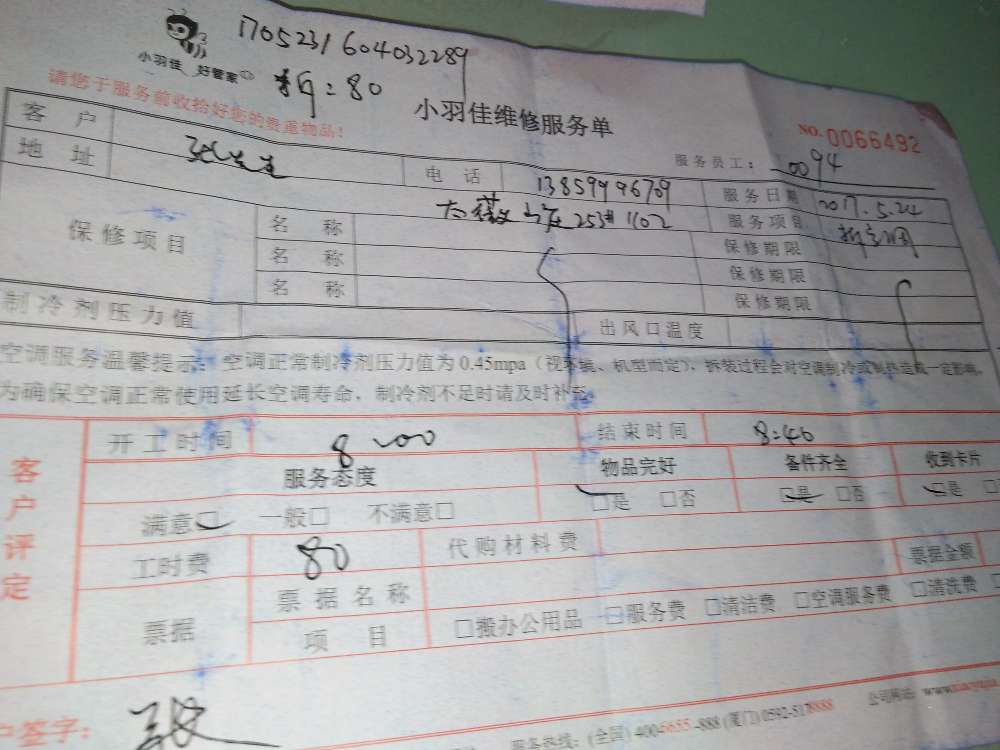 170523160403228​9
小羽佳 好管家
拆:80
请您于服务前收拾好您的贵重物品!
小羽佳维修服务单
NO. 0066492
服务员工: 0094
客户 张先生 电话 13859996709 服务日期 2017.5.24
地址 253# 1102 服务项目 拆空调
保修项目 名称 保修期限
名称 保修期限
名称 保修期限
制冷剂压力值 出风口温度
空调服务温馨提示:空调正常制冷剂压力值为0.45mpa(视环境、机型而定),拆装过程会对空调制冷或制热造成一定影响。
为确保空调正常使用延长空调寿命,制冷剂不足时请及时补充。
客户评定
开工时间 8:00 结束时间 8:40
服务态度 物品完好 备件齐全 收到卡片
满意□ 一般□ 不满意□ □是 □否 □是 □否 □是
工时费 80 代购材料费 票据金额
票据 票据名称
项目 □搬办公用品 □服务费 □清洁费 □空调服务费 □清洗费
户签字:
服务热线:(全国) 4004655-888 (厦门) 0592-5178888 公司网站: